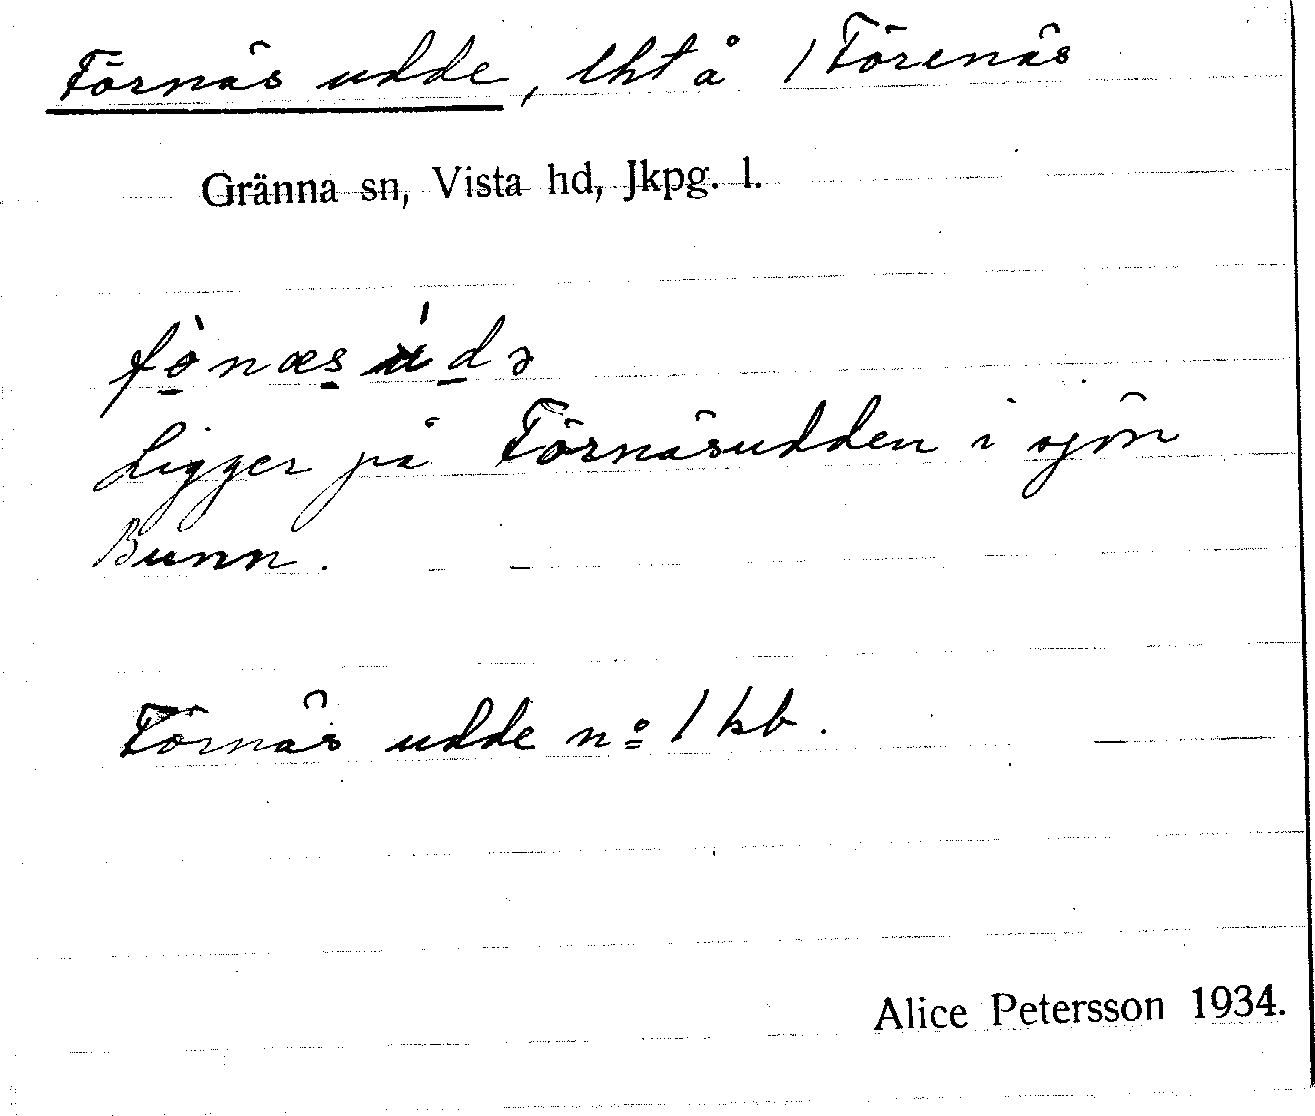 Törnäs udde, lht å 1 Törenäs
Gränna sn, Vista hd, Jkpg. l.
Ligger på Törnäsudden i sjön
Bunn.
Törnäs udde nº 1 kb.
Alice Petersson 1934.